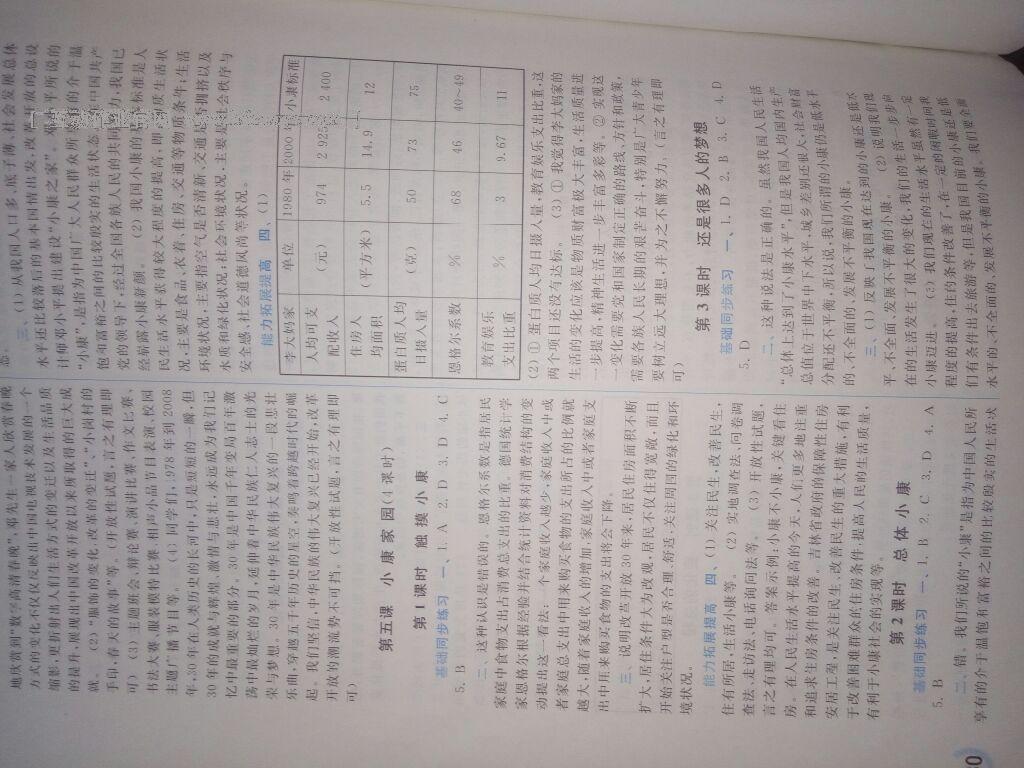 地欣赏到“数字高清春晚”,邓先生一家人欣赏春晚
方式的变化不仅仅反映出中国电视技术发展的一个
缩影,更折射出人们生活方式的变迁以及生活品质
的提升,展现出中国改革开放以来所取得的巨大成
就。 (2)“服饰的变化,改革的变迁”、“小岗村的
手印,春天的故事”等。(开放性试题,言之有理即
可) (3)主题班会、辩论赛、演讲比赛、作文比赛、
书法大赛、服装模特比赛、相声小品节目表演、校园
主题广播节目等。 (4)同学们,1978年到2008
年,30年在人类历史的长河中,只是短短的一瞬,但
30年的成就与辉煌、激情与悲壮,永远成为我们记
忆中最重要的部分。30年是中国千年变局百年激
荡中最灿烂的岁月,延伸着中华民族仁人志士的光
荣与梦想。30年是中华民族伟大复兴的一段悲壮
乐曲,穿越五千年历史的星空,奏鸣着跨越时代的崛
起。我们坚信,中华民族的伟大复兴已经开始,改革
开放的潮流势不可挡。(开放性试题,言之有理即
可)
第五课 小康家园(4课时)
第1课时 触摸小康
基础同步练习 一、1. A 2. D 3. D 4. C
5. B
二、这种认识是错误的。恩格尔系数是指居民
家庭中食物支出占消费总支出的比重。德国统计学
家恩格尔根据经验并结合统计资料对消费结构的变
动提出这一看法:一个家庭收入越少,家庭收入中或
者家庭总支出中用来购买食物的支出所占的比例就
越大,随着家庭收入的增加,家庭收入中或者家庭支
出中用来购买食物的支出将会下降。
三、说明改革开放30年来,居民住房面积不断
扩大,居住条件大为改观,居民不仅住得宽敞,而且
开始关注户型是否合理、舒适,关注周围的绿化和环
境状况。
能力拓展提高 四、(1)关注民生,改善民生,
住有所居,生活小康等。 (2)实地调查法、问卷调
查法、走访法、电话访问法等。 (3)开放性试题,
言之有理均可。答案示例:小康不小康,关键看住
房。在人民生活水平提高的今天,人们更多地注重
和追求住房条件的改善。吉林省政府的保障性住房
安居工程,是关注民生、改善民生的重大措施,有利
于改善困难群众的住房条件,提高人民的生活质量,
有利于小康社会的实现等。
第2课时 总体小康
基础同步练习 一、1. B 2. C 3. D 4. A
5. B
二、错。我们所说的“小康”是指为中国人民所
享有的介于温饱和富裕之间的比较殷实的生活状
态。
三、(1)从我国人口多、底子薄,社会发展总体
水平还比较落后的基本国情出发,改革开放的总设
计师邓小平提出建设“小康之家”。邓小平所说的
“小康”,是指为中国广大人民群众所享有的介于温
饱和富裕之间的比较殷实的生活状态。在中国共产
党的领导下,经过全国各族人民的共同努力,我国已
经崭露小康新颜。 (2)我国小康的基本标准是人
民生活水平获得较大程度的提高,即:物质生活状
况,主要是食品、衣着、住房、交通等物质条件;生活
环境状况,主要指空气是否清新、交通是否拥挤以及
水质和绿化状况;社会环境状况,主要是社会秩序与
安全感,社会道德风尚等状况。
能力拓展提高 四、(1)
李大妈家 单位 1980年 2000年 小康标准
人均可支配收入 (元) 974 2 925 2 400
住房人均面积 (平方米) 5.5 14.9 12
蛋白质人均日摄入量 (克) 50 73 75
恩格尔系数 % 68 46 40~49
教育娱乐支出比重 % 3 9.67 11
(2)①蛋白质人均日摄入量,教育娱乐支出比重,这
两个项目还没有达标。 (3)①我觉得李大妈家的
生活的变化应该是物质财富极大丰富,生活质量进
一步提高,精神生活进一步丰富多彩等。②实现这
一变化需要党和国家制定正确的路线、方针和政策,
需要各族人民长期的艰苦奋斗,特别是广大青少年
要树立远大理想,并为之不懈努力。(言之有理即
可)
第3课时 还是很多人的梦想
基础同步练习 一、1. D 2. B 3. C 4. D
5. D
二、这种说法是正确的。虽然我国人民生活
“总体上达到了小康水平”,但是我国人均国内生产
总值位于世界中下水平,城乡差别还很大,社会财富
分配还不平衡,所以说,我们所谓的小康仍是低水平
的、不全面的、发展不平衡的小康。
三、(1)反映了我国现在达到的小康还是低水
平、不全面、发展不平衡的小康。 (2)说明我们现
在的生活发生了很大的变化,我们的生活一步步向
小康迈进。